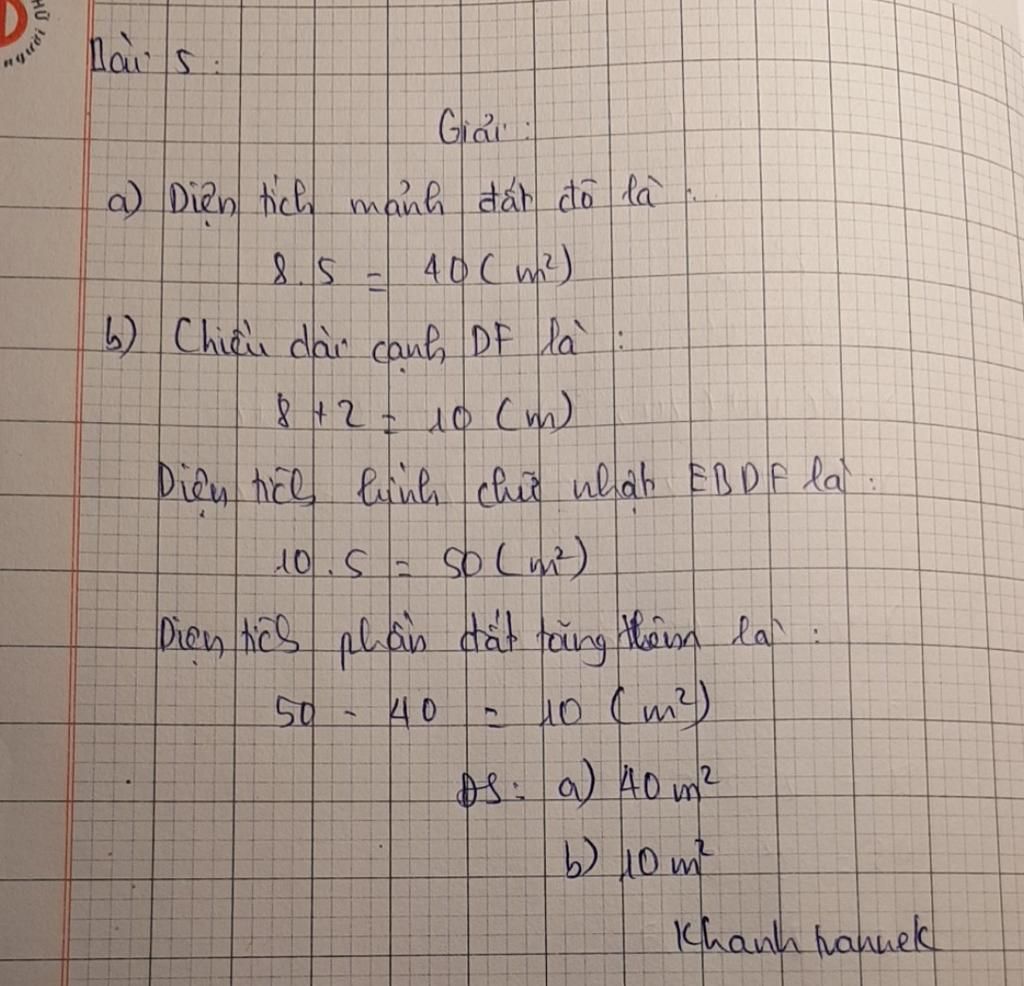 HỮ
người
Bài 5:
Giải:
a) Diện tích mảnh đất đó là:
8.5 = 40 (m²)
b) Chiều dài cạnh DF là:
8 + 2 = 10 (m)
Diện tích hình chữ nhật EBDF là:
10.5 = 50 (m²)
Diện tích phần đất tăng thêm là:
50 - 40 = 10 (m²)
ĐS: a) 40 m²
b) 10 m²
Khanh